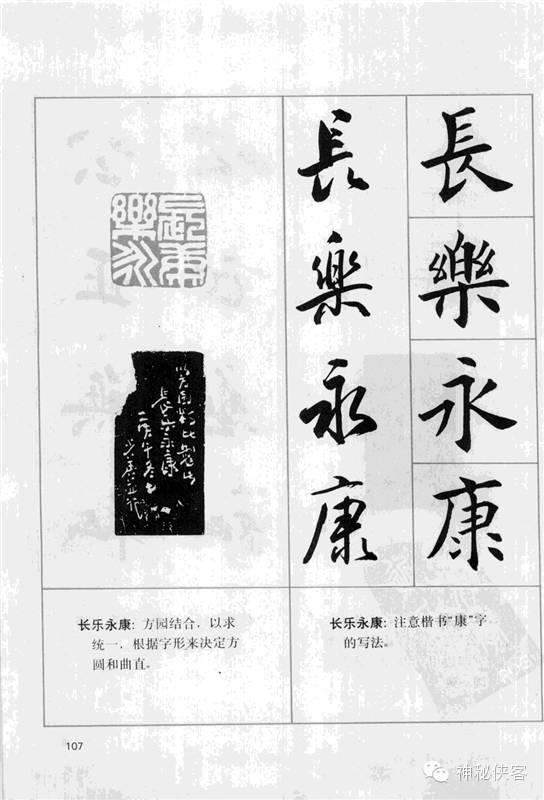 長樂永康
長樂永康
長樂永康
长乐永康: 方园结合, 以求
统一, 根据字形来决定方
圆和曲直。
长乐永康: 注意楷书“康”字
的写法。
107
神秘侠客